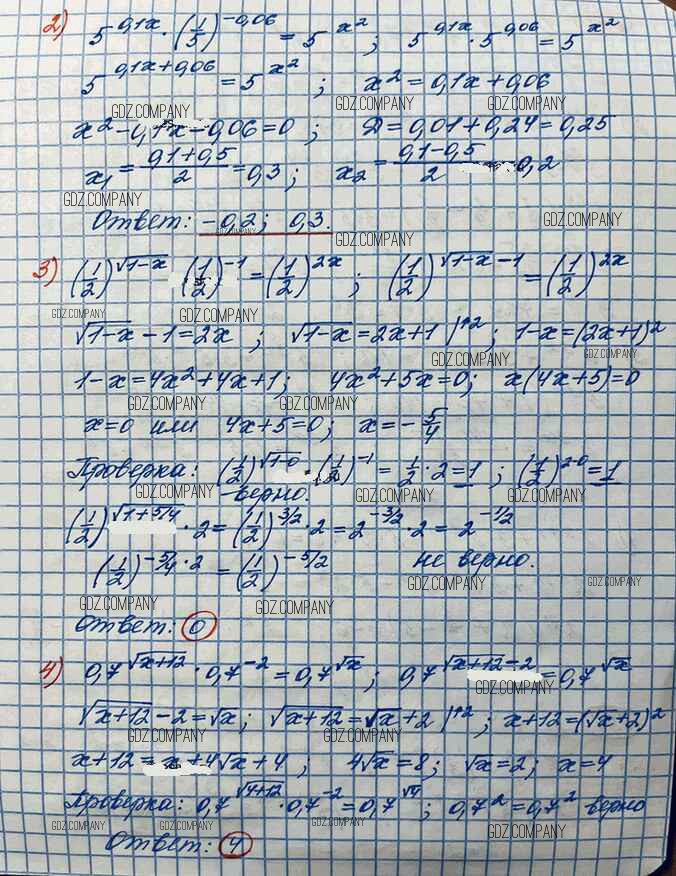 2) 5^{0,1x} · (1/5)^{-0,06} = 5^{x^2} ; 5^{0,1x} · 5^{0,06} = 5^{x^2}
5^{0,1x+0,06} = 5^{x^2} ; x^2 = 0,1x + 0,06
GDZ.COMPANY GDZ.COMPANY GDZ.COMPANY
x^2 - 0,1x - 0,06 = 0 ; D = 0,01 + 0,24 = 0,25
x_1 = (0,1+0,5)/2 = 0,3 ; x_2 = (0,1-0,5)/2 = -0,2
GDZ.COMPANY
Ответ: -0,2 ; 0,3. GDZ.COMPANY
GDZ.COMPANY GDZ.COMPANY
3) (1/2)^{√(1-x)} · (1/2)^{-1} = (1/2)^{2x} ; (1/2)^{√(1-x) - 1} = (1/2)^{2x}
GDZ.COMPANY GDZ.COMPANY
√(1-x) - 1 = 2x ; √(1-x) = 2x+1 |↑2 ; 1-x = (2x+1)^2
GDZ.COMPANY GDZ.COMPANY
1-x = 4x^2+4x+1 ; 4x^2+5x=0 ; x(4x+5)=0
GDZ.COMPANY GDZ.COMPANY GDZ.COMPANY
x=0 или 4x+5=0 ; x = -5/4
Проверка: (1/2)^{√(1-0)} · (1/2)^{-1} = 1/2 · 2 = 1 ; (1/2)^{2·0} = 1
GDZ.COMPANY - верно. GDZ.COMPANY GDZ.COMPANY
(1/2)^{√(1+5/4)} · 2 = (1/2)^{3/2} · 2 = 2^{-3/2} · 2 = 2^{-1/2}
(1/2)^{-5/4 · 2} = (1/2)^{-5/2} не верно.
GDZ.COMPANY GDZ.COMPANY
GDZ.COMPANY GDZ.COMPANY
Ответ: 0
4) 0,7^{√(x+12)} · 0,7^{-2} = 0,7^{√x} ; 0,7^{√(x+12) - 2} = 0,7^{√x}
GDZ.COMPANY
√(x+12) - 2 = √x ; √(x+12) = √x + 2 |↑2 ; x+12 = (√x+2)^2
GDZ.COMPANY GDZ.COMPANY GDZ.COMPANY
x+12 = x + 4√x + 4 ; 4√x = 8 ; √x = 2 ; x = 4
GDZ.COMPANY GDZ.COMPANY
Проверка: 0,7^{√(4+12)} · 0,7^{-2} = 0,7^{√4} ; 0,7^2 = 0,7^2 верно
GDZ.COMPANY GDZ.COMPANY GDZ.COMPANY GDZ.COMPANY
Ответ: 4